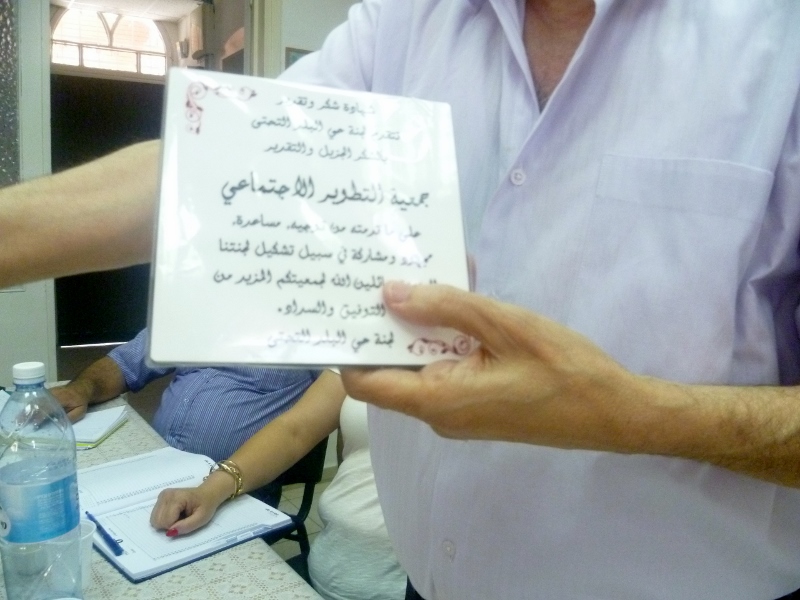 شهادة شكر وتقدير
تتقدم لجنة حي البلد التحتى
بالشكر الجزيل والتقدير
جمعية التطوير الاجتماعي
على ما قدمته من توجيه، مساعدة،
ومشاركة في سبيل تشكيل لجنتنا
سائلين الله لجمعيتكم المزيد من
التوفيق والسداد.
لجنة حي البلد التحتى